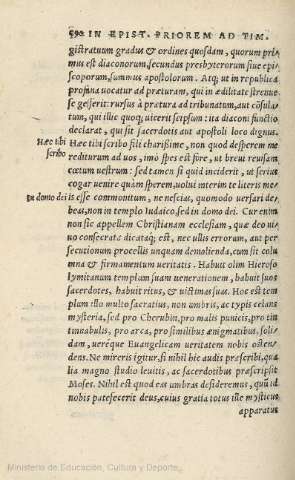 590 IN EPIST. PRIOREM AD TIM.
gistratuum gradus & ordines quosdam, quorum pri
mus est diaconorum, secundus presbyterorum siue epi
scoporum, summus apostolorum. Atq; ut in republica
profana uocatur ad præturam, qui in ædilitate strenue
se gesserit: rursus à prætura ad tribunatum, aut cōsula/
tum, qui illic quoq; uicerit seipsum: ita diaconi functio
declarat, qui sit sacerdotis aut apostoli loco dignus.
Hæc tibi scribo
Hæc tibi scribo fili charissime, non quod desperem me
rediturum ad uos, imò spes est fore, ut breui reuisam
cœtum uestrum: sed tamen si quid inciderit, ut serius
cogar uenire quàm sperem, uolui interim te literis me/
In domo dei
is esse commonitum, ne nescias, quomodo uersari de/
beas, non in templo Iudaico, sed in domo dei. Cur enim
non sic appellem Christianam ecclesiam, quæ deo ui/
uo consecrata dicataq; est, nec ullis errorum, aut per
secutionum procellis unquam demolienda, cum sit colu
mna & firmamentum ueritatis. Habuit olim Hieroso
lymitanum templum suam uenerationem, habuit suos
sacerdotes, habuit ritus, & uictimas suas. Hoc est tem
plum illo multo sacratius, non umbris, ac typis celans
mysteria, sed pro Cherubin, pro malis punicis, pro tin
tinnabulis, pro arca, pro similibus ænigmatibus, soli/
dam, ueréque Euangelicam ueritatem nobis osten/
dens. Ne mireris igitur, si nihil hic audis præscribi, qua
lia magno studio leuitis, ac sacerdotibus præscripsit
Moses. Nihil est quod eas umbras desideremus, quū id
nobis patefecerit deus, cuius gratia totus ille mysticus
apparatus
Ministerio de Educación, Cultura y Deporte